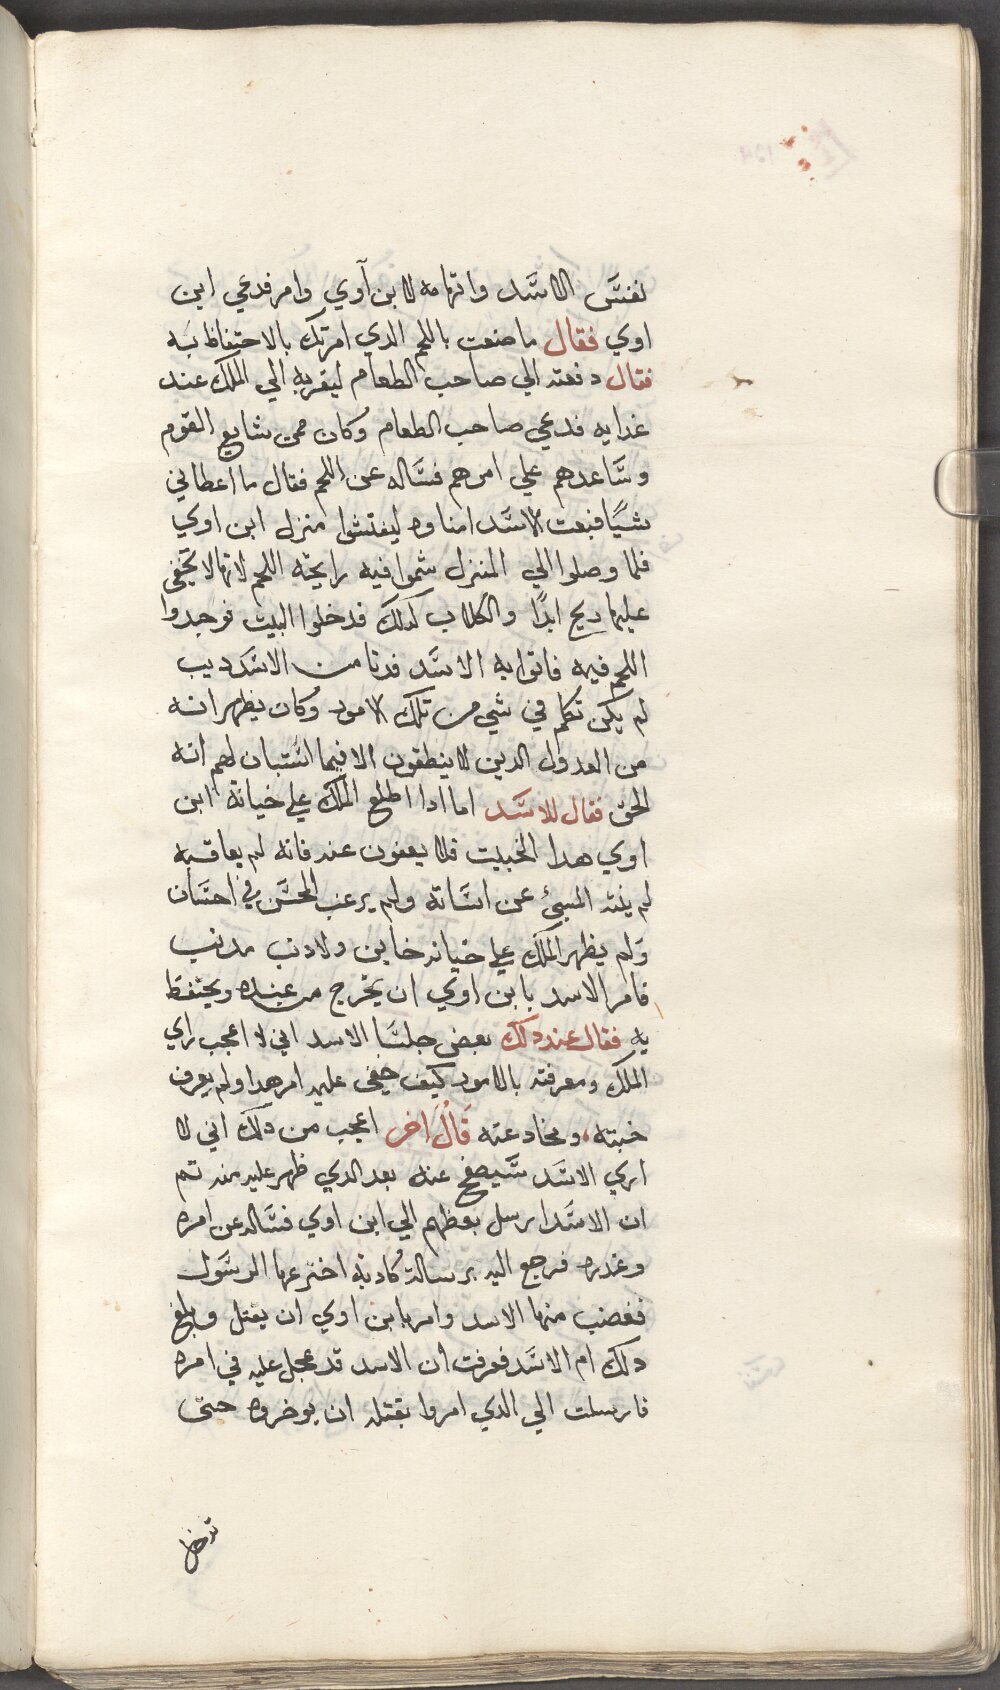 نفسَ الاسَد واتهامه لابن آوي وامر فدعي ابن
اوي فقال ما صنعت باللحم الدي امرتك بالاحتفاظ به
فقال دفعته الي صاحب الطعام ليقربه الي الملك عند
غدايه فدعي صاحب الطعام وكان ممن شايع القوم
وسَاعدهم علي امرهم فسَاله عن اللحم فقال ما اعطاني
شيًا فبعت الاسَد امناوه ليفتشوا منزل ابن اوي
فلما وصلوا الي المنزل شموا فيه رايحة اللحم لانها لا تخفي
عليها ريح ابدًا والكلاب كدلك فدخلوا البيت فوجدوا
اللحم فيه فاتوا به الاسَد فدنا من الاسَد ديب
لم يكن تكلم في شي من تلك الامور وكان يظهر انه
من العدول الدين لا ينطقون الا فيما استَبان لهم انه
الحق فقال للاسَد اما ادا اطلع الملك علي خيانة ابن
اوي هدا الخبيت فلا يعفون عنه فانه لم يعاقبه
لم ينته المسيئ عن اسَاته ولم يرغب المحسَن في احسَان
وَلم يظهر الملك علي خيانه خاين ولا دنب مدنب
فامر الاسد بابن اوي ان يخرج من عنده ويحتفظ
به فقال عند دلك بعض جلسَا الاسد اني لا اعجب راي
الملك ومعرفته بالامور كيف خفي عليه امر هدا ولم يعرف
خبته ومخادعته قَالَ اخر اعجب من دلك اني لا
اري الاسَد سَيصفح عنه بعد الدي ظهر عليه منه تم
ان الاسَد ارسل بعظهم الي ابن اوي فسَاله عن امره
وغدره فرجع اليه برسالة كادبة اخترعها الرسَول
فغضب منها الاسد وامر بابن اوي ان يقتل وبلغ
دلك ام الاسَد فعرفت ان الاسد قد عجل عليه في امره
فارسلت الي الدي امروا بقتله ان يوخروه حتى